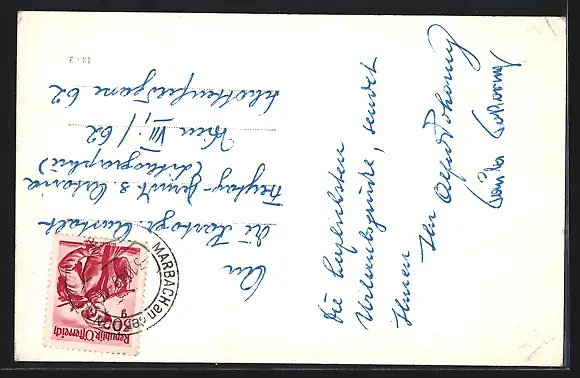 Die herzlichsten
Urlaubsgrüße, sendet
Ihnen
Ihr Alfred Pokorny
Pokorny
An
die Kartogr. Anstalt
Freytag-Berndt & Artaria
(Lithographie)
Wien VII., / 62
Schottenfeldgasse 62
MARBACH an der DONAU
Republik Österreich